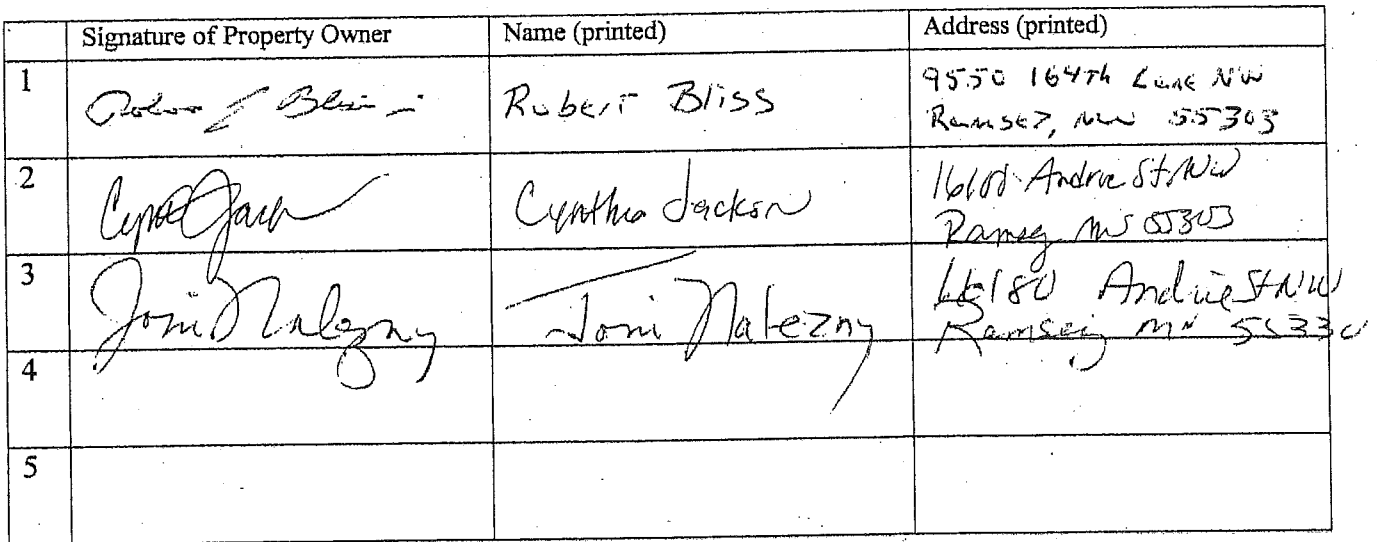 Signature of Property Owner Name (printed) Address (printed)
1 Robert Bliss 9550 164th Lane NW
Ramsey, MN 55303
2 Cynthia Jackson Andrie St NW
Ramsey MN 55303
3 Joni Nalezny Joni Nalezny 16180 Andrie St NW
Ramsey MN 55330
4
5